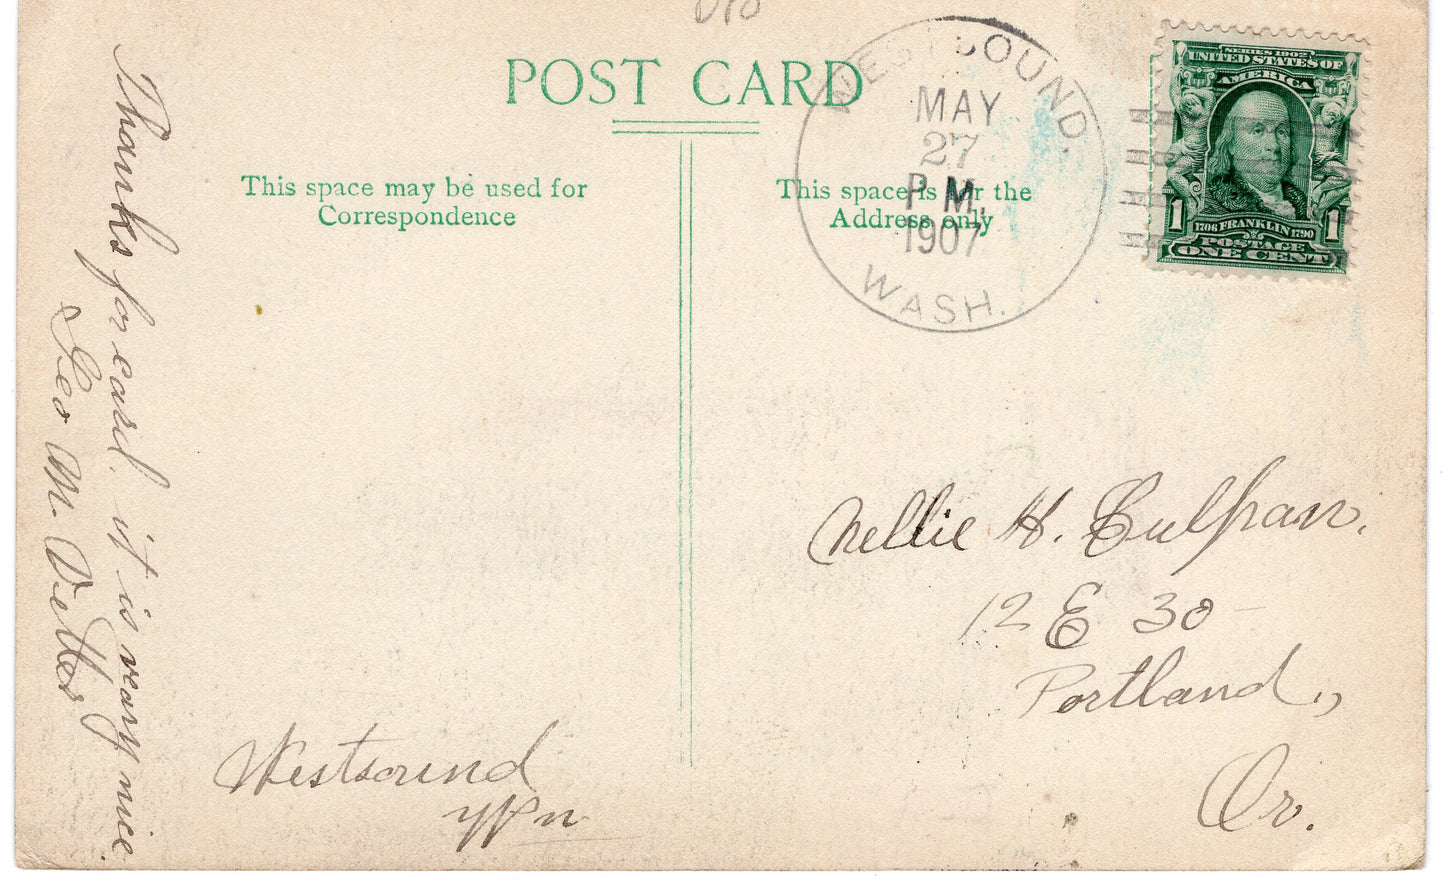 POST CARD
This space may be used for
Correspondence
This space is for the
Address only
WEST SOUND.
MAY
27
P M.
1907
WASH.
SERIES 1902
UNITED STATES OF
AMERICA
1 1706 FRANKLIN 1790 1
POSTAGE
ONE CENT
Thanks for card. it is veary nice
Geo M. Vetter
Westsound
Wn
Nellie H. Culpan.
12 E 30
Portland.,
Or.